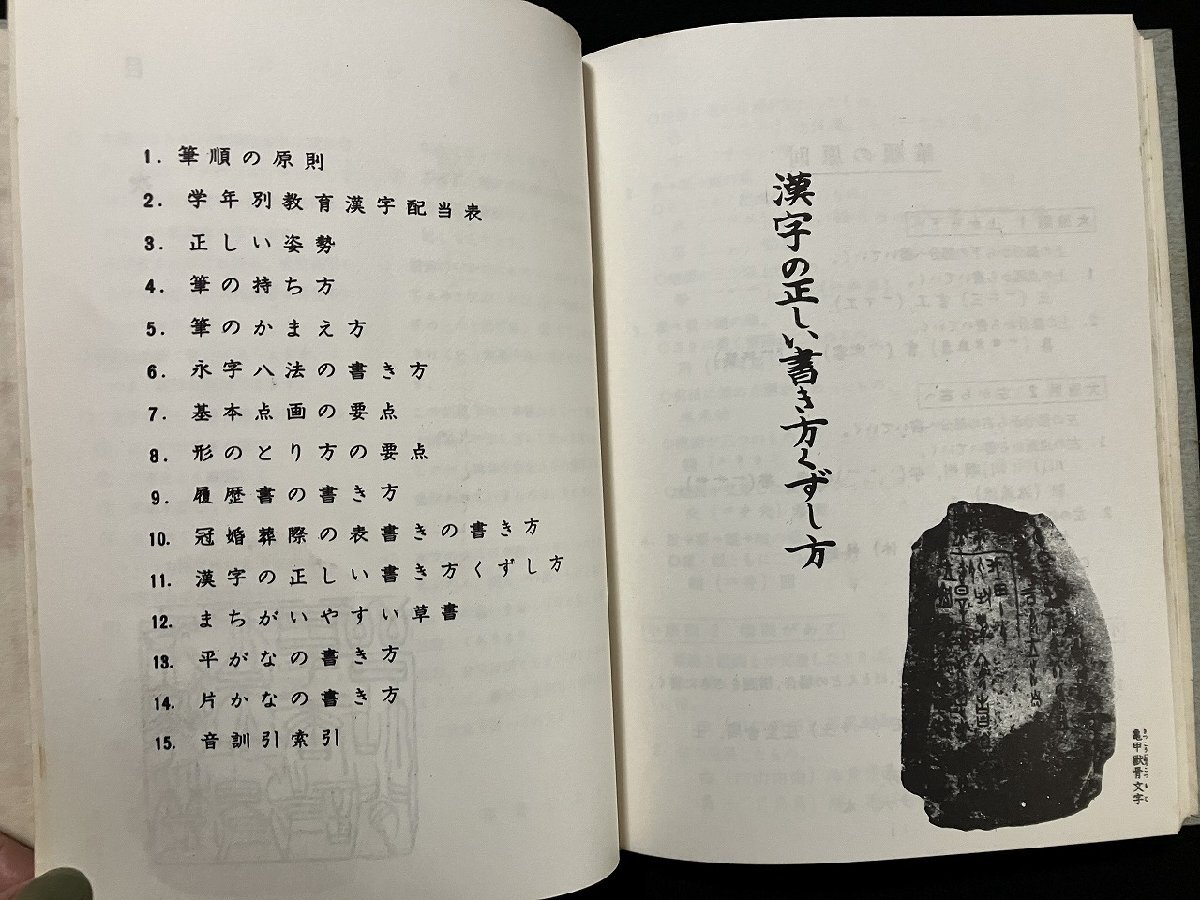 1. 筆順の原則
2. 学年別教育漢字配当表
3. 正しい姿勢
4. 筆の持ち方
5. 筆のかまえ方
6. 永字八法の書き方
7. 基本点画の要点
8. 形のとり方の要点
9. 履歴書の書き方
10. 冠婚葬際の表書きの書き方
11. 漢字の正しい書き方くずし方
12. まちがいやすい草書
13. 平がなの書き方
14. 片かなの書き方
15. 音訓引索引
漢字の正しい書き方くずし方
亀甲獣骨文字